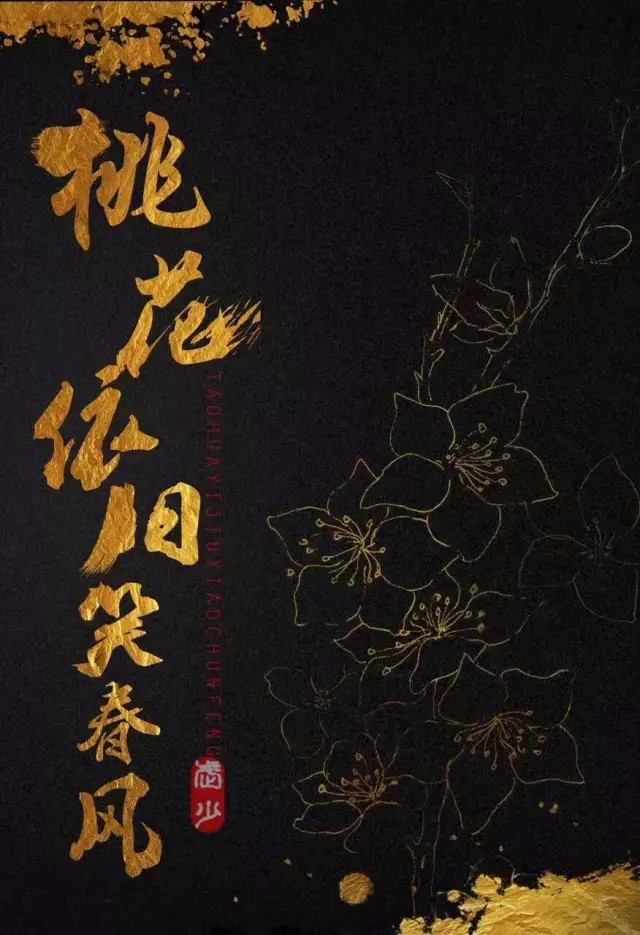 桃花依旧笑春风
TAOHUAYIJIUXIAOCHUNFENG